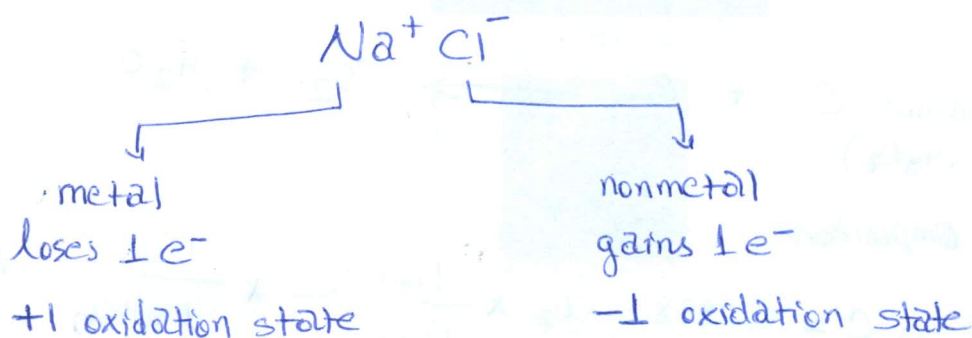 Na⁺ Cl⁻
metal
loses 1 e⁻
+1 oxidation state
nonmetal
gains 1 e⁻
-1 oxidation state